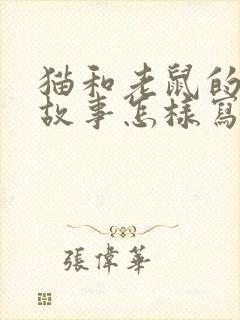 猫和老鼠的
故事怎樣寫
張偉華